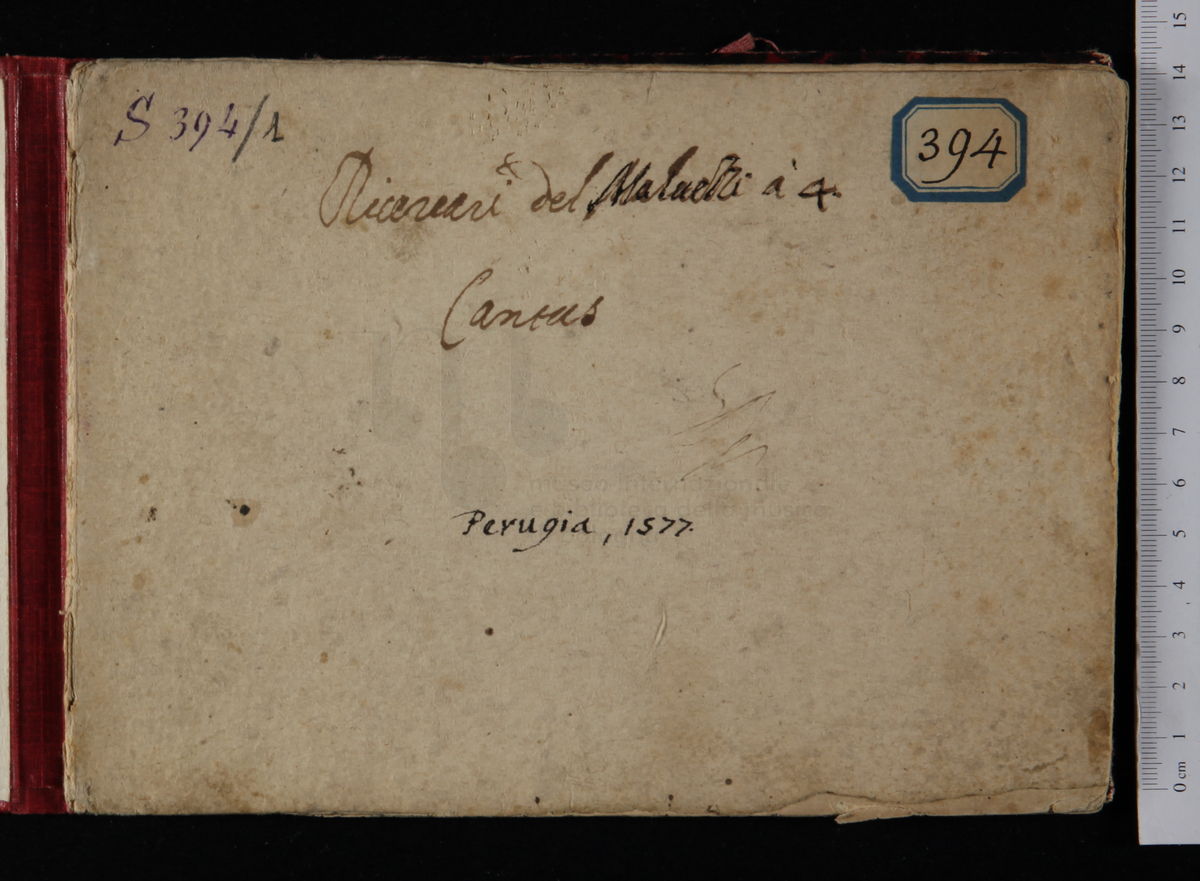 S 394/1
394
Ricercari del Maluezzi à 4.
Cantus
museo internazionale
della musica
Perugia, 1577.
15
14
13
12
11
10
9
8
7
6
5
4
3
2
1
0 cm